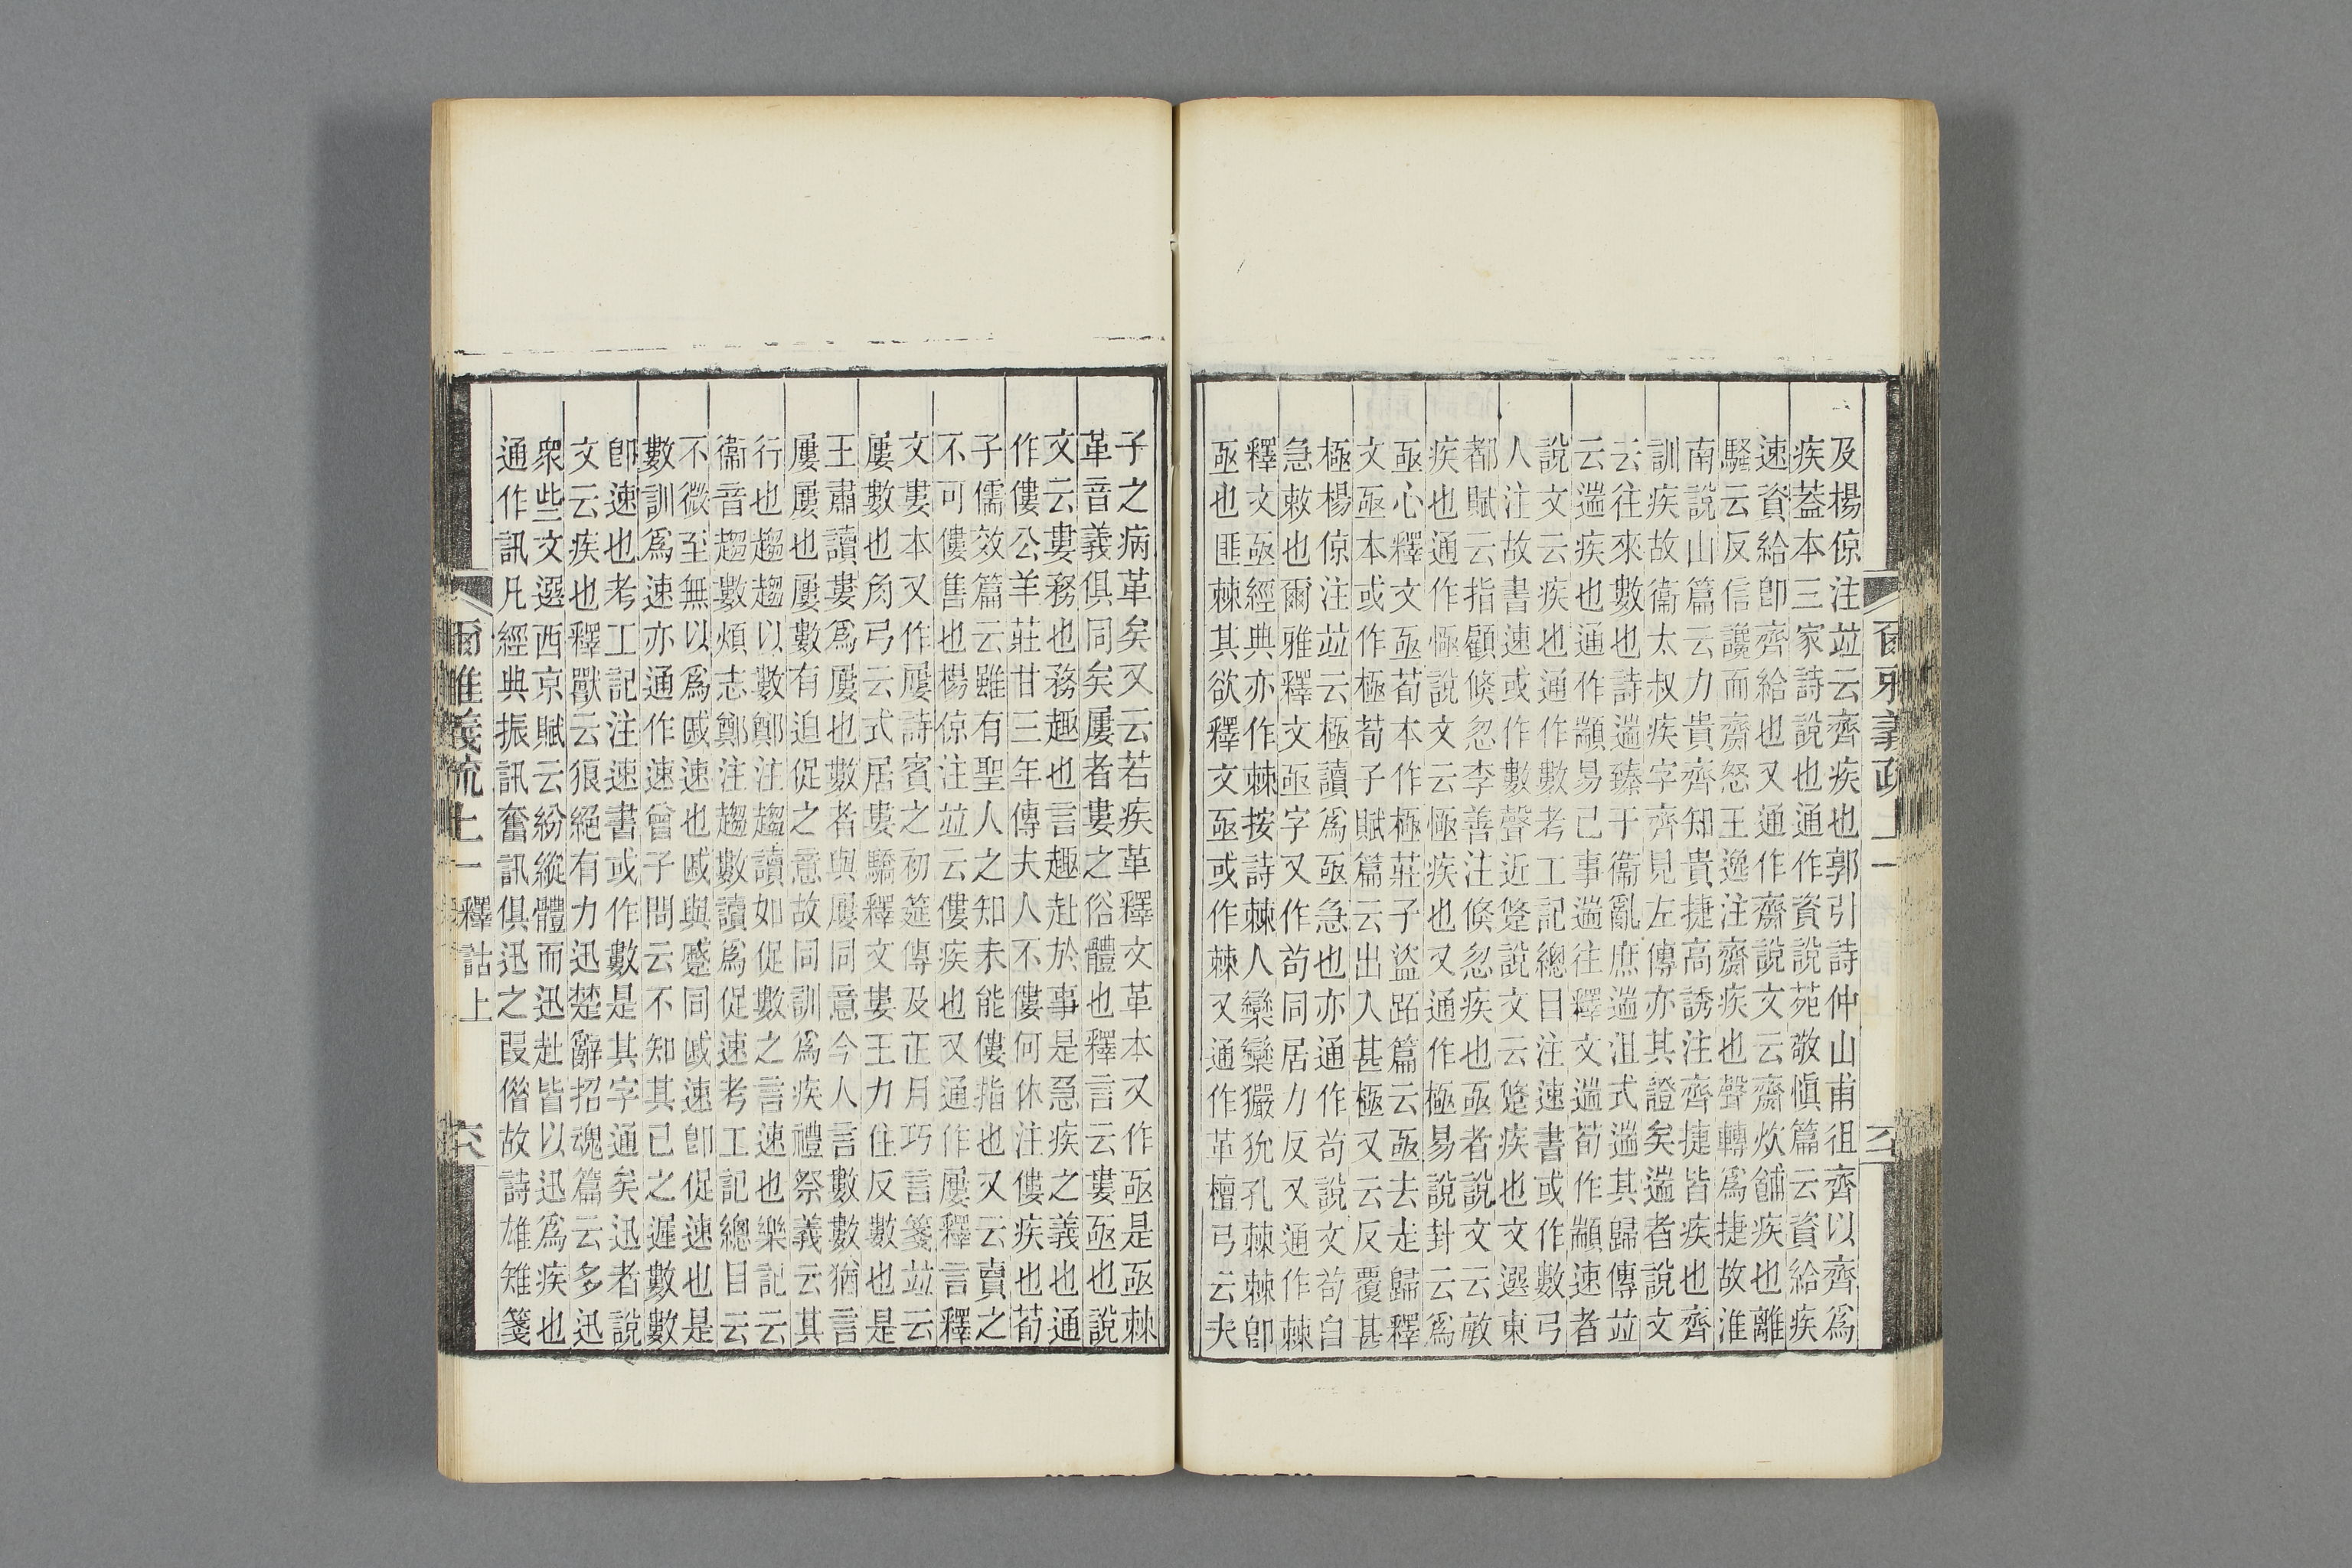 及楊倞注竝云齊疾也郭引詩仲山甫徂齊以齊為
疾葢本三家詩說也通作資說苑敬慎篇云資給疾
速資給卽齊給也又通作齌說文云齌炊餔疾也離
騷云反信讒而齌怒王逸注齌疾也聲轉爲捷故淮
南說山篇云力貴齊知貴捷高誘注齊捷皆疾也齊
訓疾故衞太叔疾字齊見左傳亦其證矣遄者說文
云往來數也詩遄臻于衞亂庶遄沮式遄其歸傳竝
云遄疾也通作顓易已事遄往釋文遄荀作顓速者
說文云疾也通作數考工記總目注速書或作數弓
人注故書速或作數聲近疌說文云疌疾也文選東
都賦云指顧倏忽李善注倏忽疾也亟者說文云敏
疾也通作㥛說文云㥛疾也又通作極易說卦云爲
亟心釋文亟荀本作極莊子盜跖篇云亟去走歸釋
文亟本或作極荀子賦篇云出入甚極又云反覆甚
極楊倞注竝云極讀爲亟急也亦通作茍說文茍自
急敕也爾雅釋文亟字又作茍同居力反又通作棘
釋文亟經典亦作棘按詩棘人欒欒玁狁孔棘棘卽
亟也匪棘其欲釋文亟或作棘又通作革檀弓云夫
子之病革矣又云若疾革釋文革本又作亟是亟棘
革音義俱同矣屢者婁之俗體也釋言云婁亟也說
文云婁務也務趣也言趣赴於事是急疾之義也通
作僂公羊莊廿三年傳夫人不僂何休注僂疾也荀
子儒效篇云雖有聖人之知未能僂指也又云賣之
不可僂售也楊倞注竝云僂疾也又通作屢釋言釋
文婁本又作屢詩賓之初筵傳及正月巧言箋竝云
屢數也角弓云式居婁驕釋文婁王力住反數也是
王肅讀婁爲屢也數者與屢同意今人言數數猶言
屢屢也屢數有迫促之意故同訓爲疾禮祭義云其
行也趨趨以數鄭注趨讀如促數之言速也樂記云
衞音趨數煩志鄭注趨數讀爲促速考工記總目云
不微至無以爲戚速也戚與蹙同戚速卽促速也是
數訓爲速亦通作速曾子問云不知其已之遲數數
卽速也考工記注速書或作數是其字通矣迅者說
文云疾也釋獸云狼絕有力迅楚辭招魂篇云多迅
衆些文選西京賦云紛縱體而迅赴皆以迅爲疾也
通作訊凡經典振訊奮訊俱迅之叚僭故詩雄雉箋
爾雅義疏上一 釋詁上